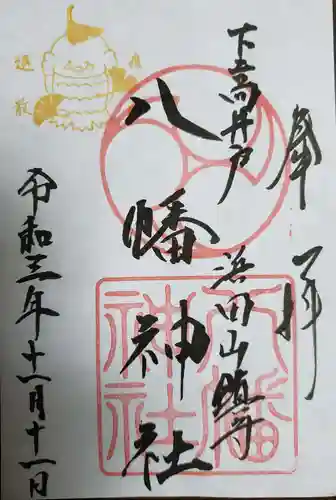 奉拝
下高井戸
浜田山鎮守
八幡神社
八幡神社
令和三年十一月十一日